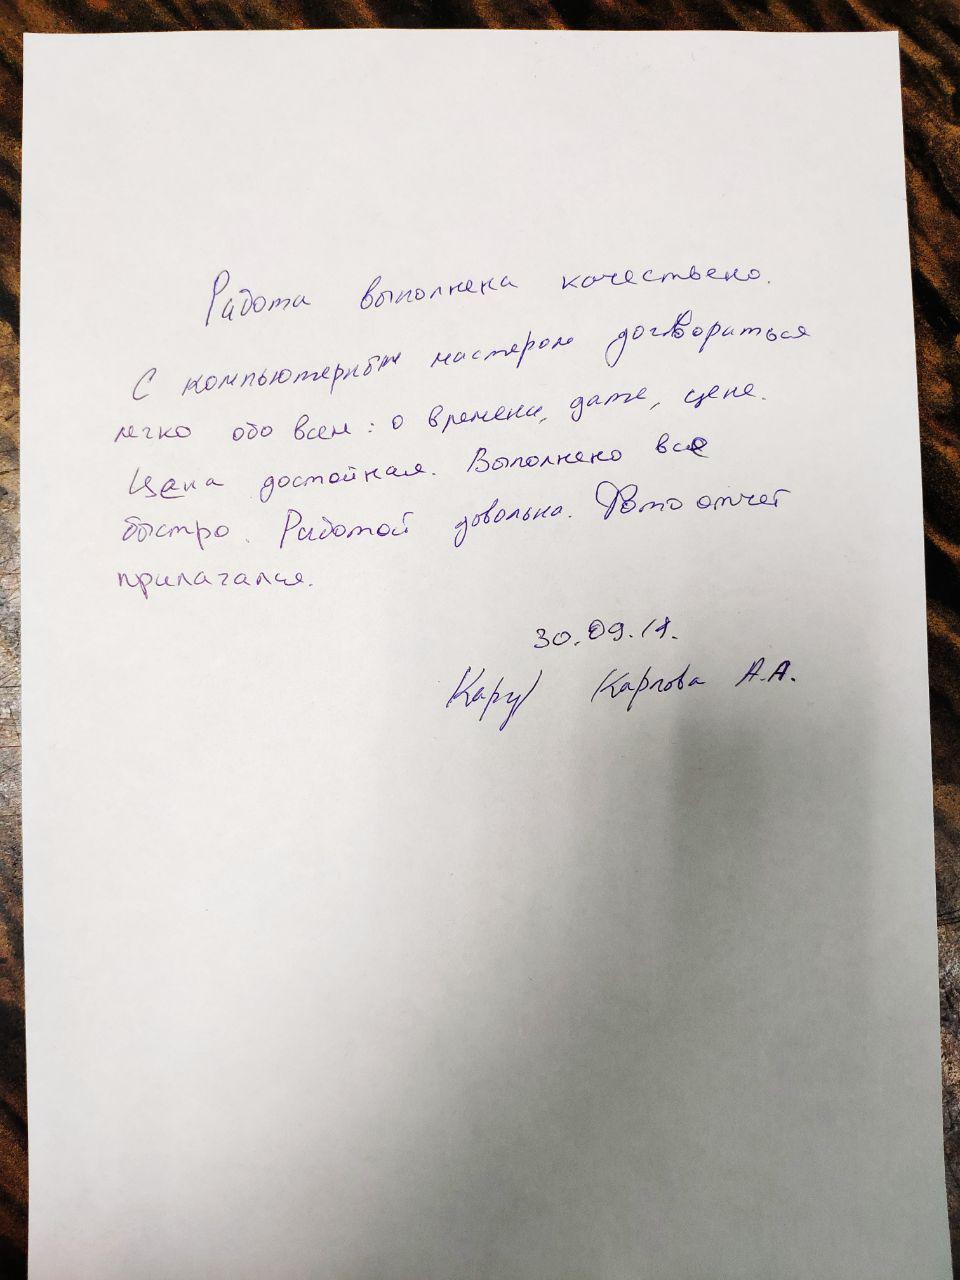 Работа выполнена качествено.
С компьютерным мастером договораться
легко обо всем: о времени, дате, цене.
Цена достойная. Выполнено все
быстро. Работой довольна. Фото отчет
прилагался.
30.09.
Карлова А.А.